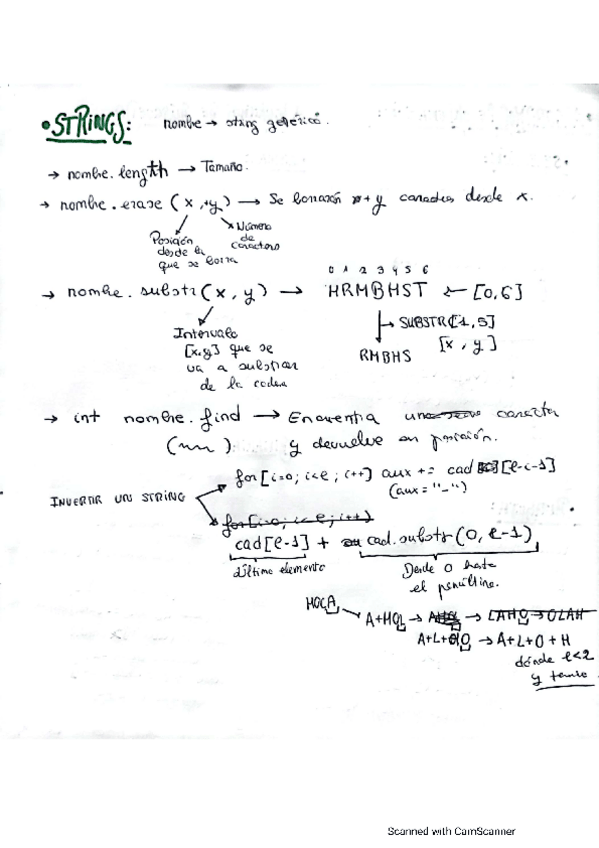 •STRINGS: nombre → string genérico.
→ nombre.length → Tamaño.
→ nombre.erase (x, y) → Se borrarán y caracteres desde x.
Posición desde la que se borra
Número de caracteres
0 1 2 3 4 5 6
→ nombre.substr(x, y) → HRMBHST ← [0,6]
SUBSTR[1,5]
[x, y]
RMBHS
Intervalo
[x,y] que se
va a
de la cadena
→ int nombre.find → Encuentra carácter
y devuelve posición.
for[i=0; i<e; i++] aux += cad [e-i-1]
(aux="-")
INVERTIR UN STRING
for[i=0; i<e; i++)
cad[e-1] + cad.substr(0, e-1)
último elemento
Desde 0 hasta
el penúltimo.
HOLA
A+HOL → → LAHO → OLAH
→ A+L+O+H
dónde e<2
y
Scanned with CamScanner